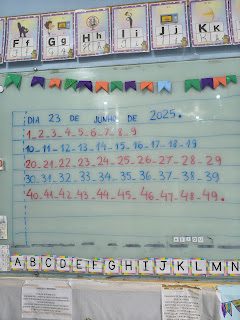 Ff Gg Hh Ii Jj Kk
DIA 23 DE JUNHO DE 2025.
1-2-3-4-5-6-7-8-9
10-11-12-13-14-15-16-17-18-19
20-21-22-23-24-25-26-27-28-29
30-31-32-33-34-35-36-37-38-39
40-41-42-43-44-45-46-47-48-49.
A B C D E F G H I J K L M N